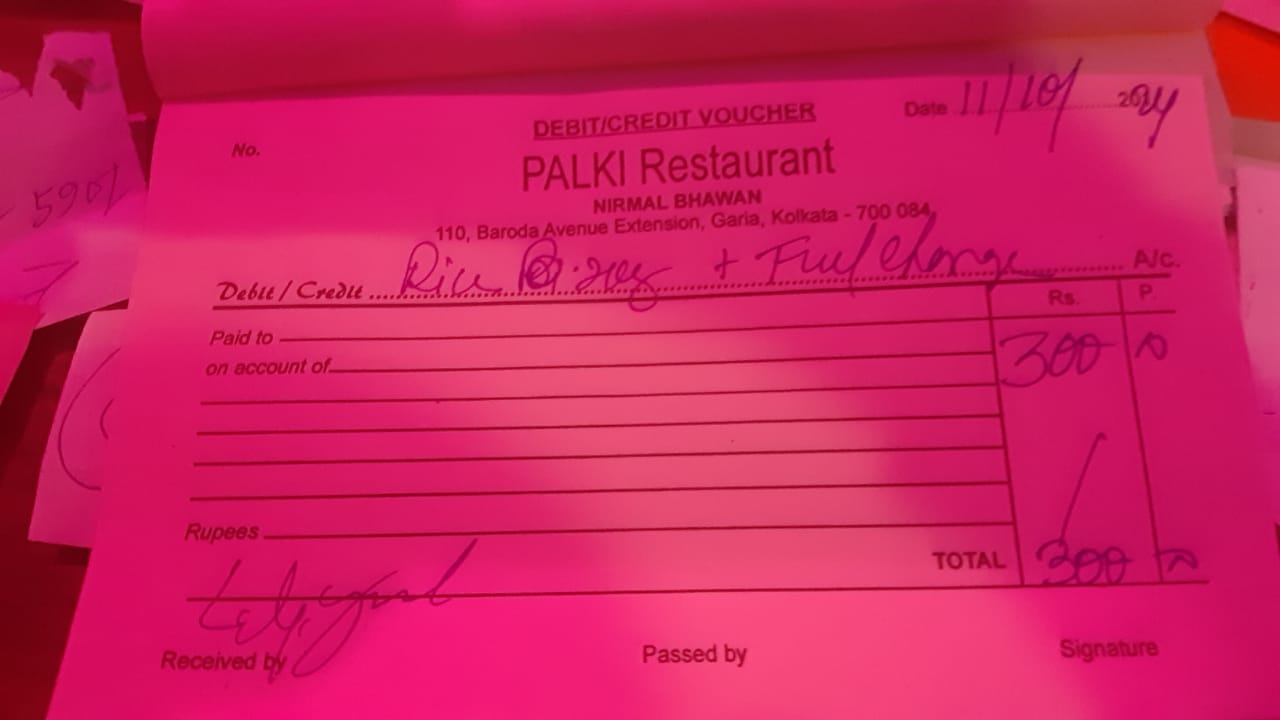 DEBIT/CREDIT VOUCHER
Date 11/10/ 2024
No.
PALKI Restaurant
NIRMAL BHAWAN
110, Baroda Avenue Extension, Garia, Kolkata - 700 084
Debit / Credit Rice + Fuel change A/c.
Rs. P.
Paid to
300
on account of
Rupees
TOTAL 300
Received by Passed by Signature
590/